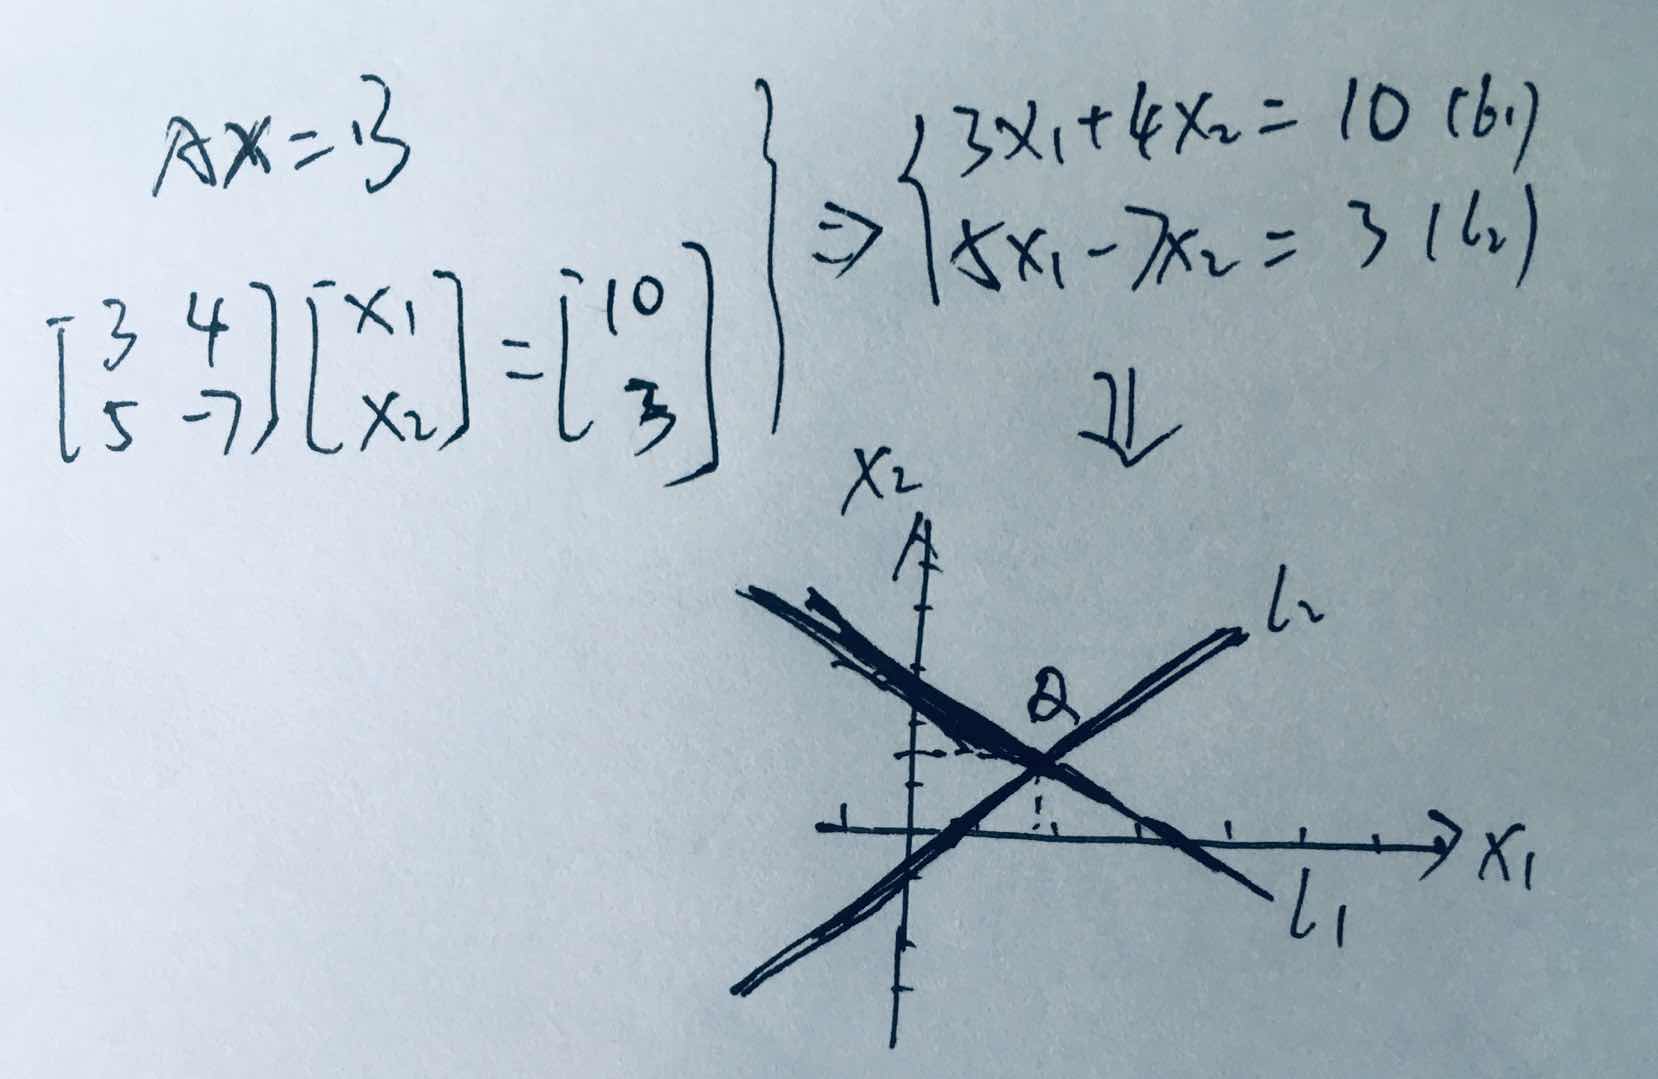 AX=B
[3 4] [x1] = [10]
[5 -7] [x2] [3]
⇒ { 3x1+4x2=10 (l1)
5x1-7x2=3 (l2)
⇓
x2
l2
Q
x1
l1